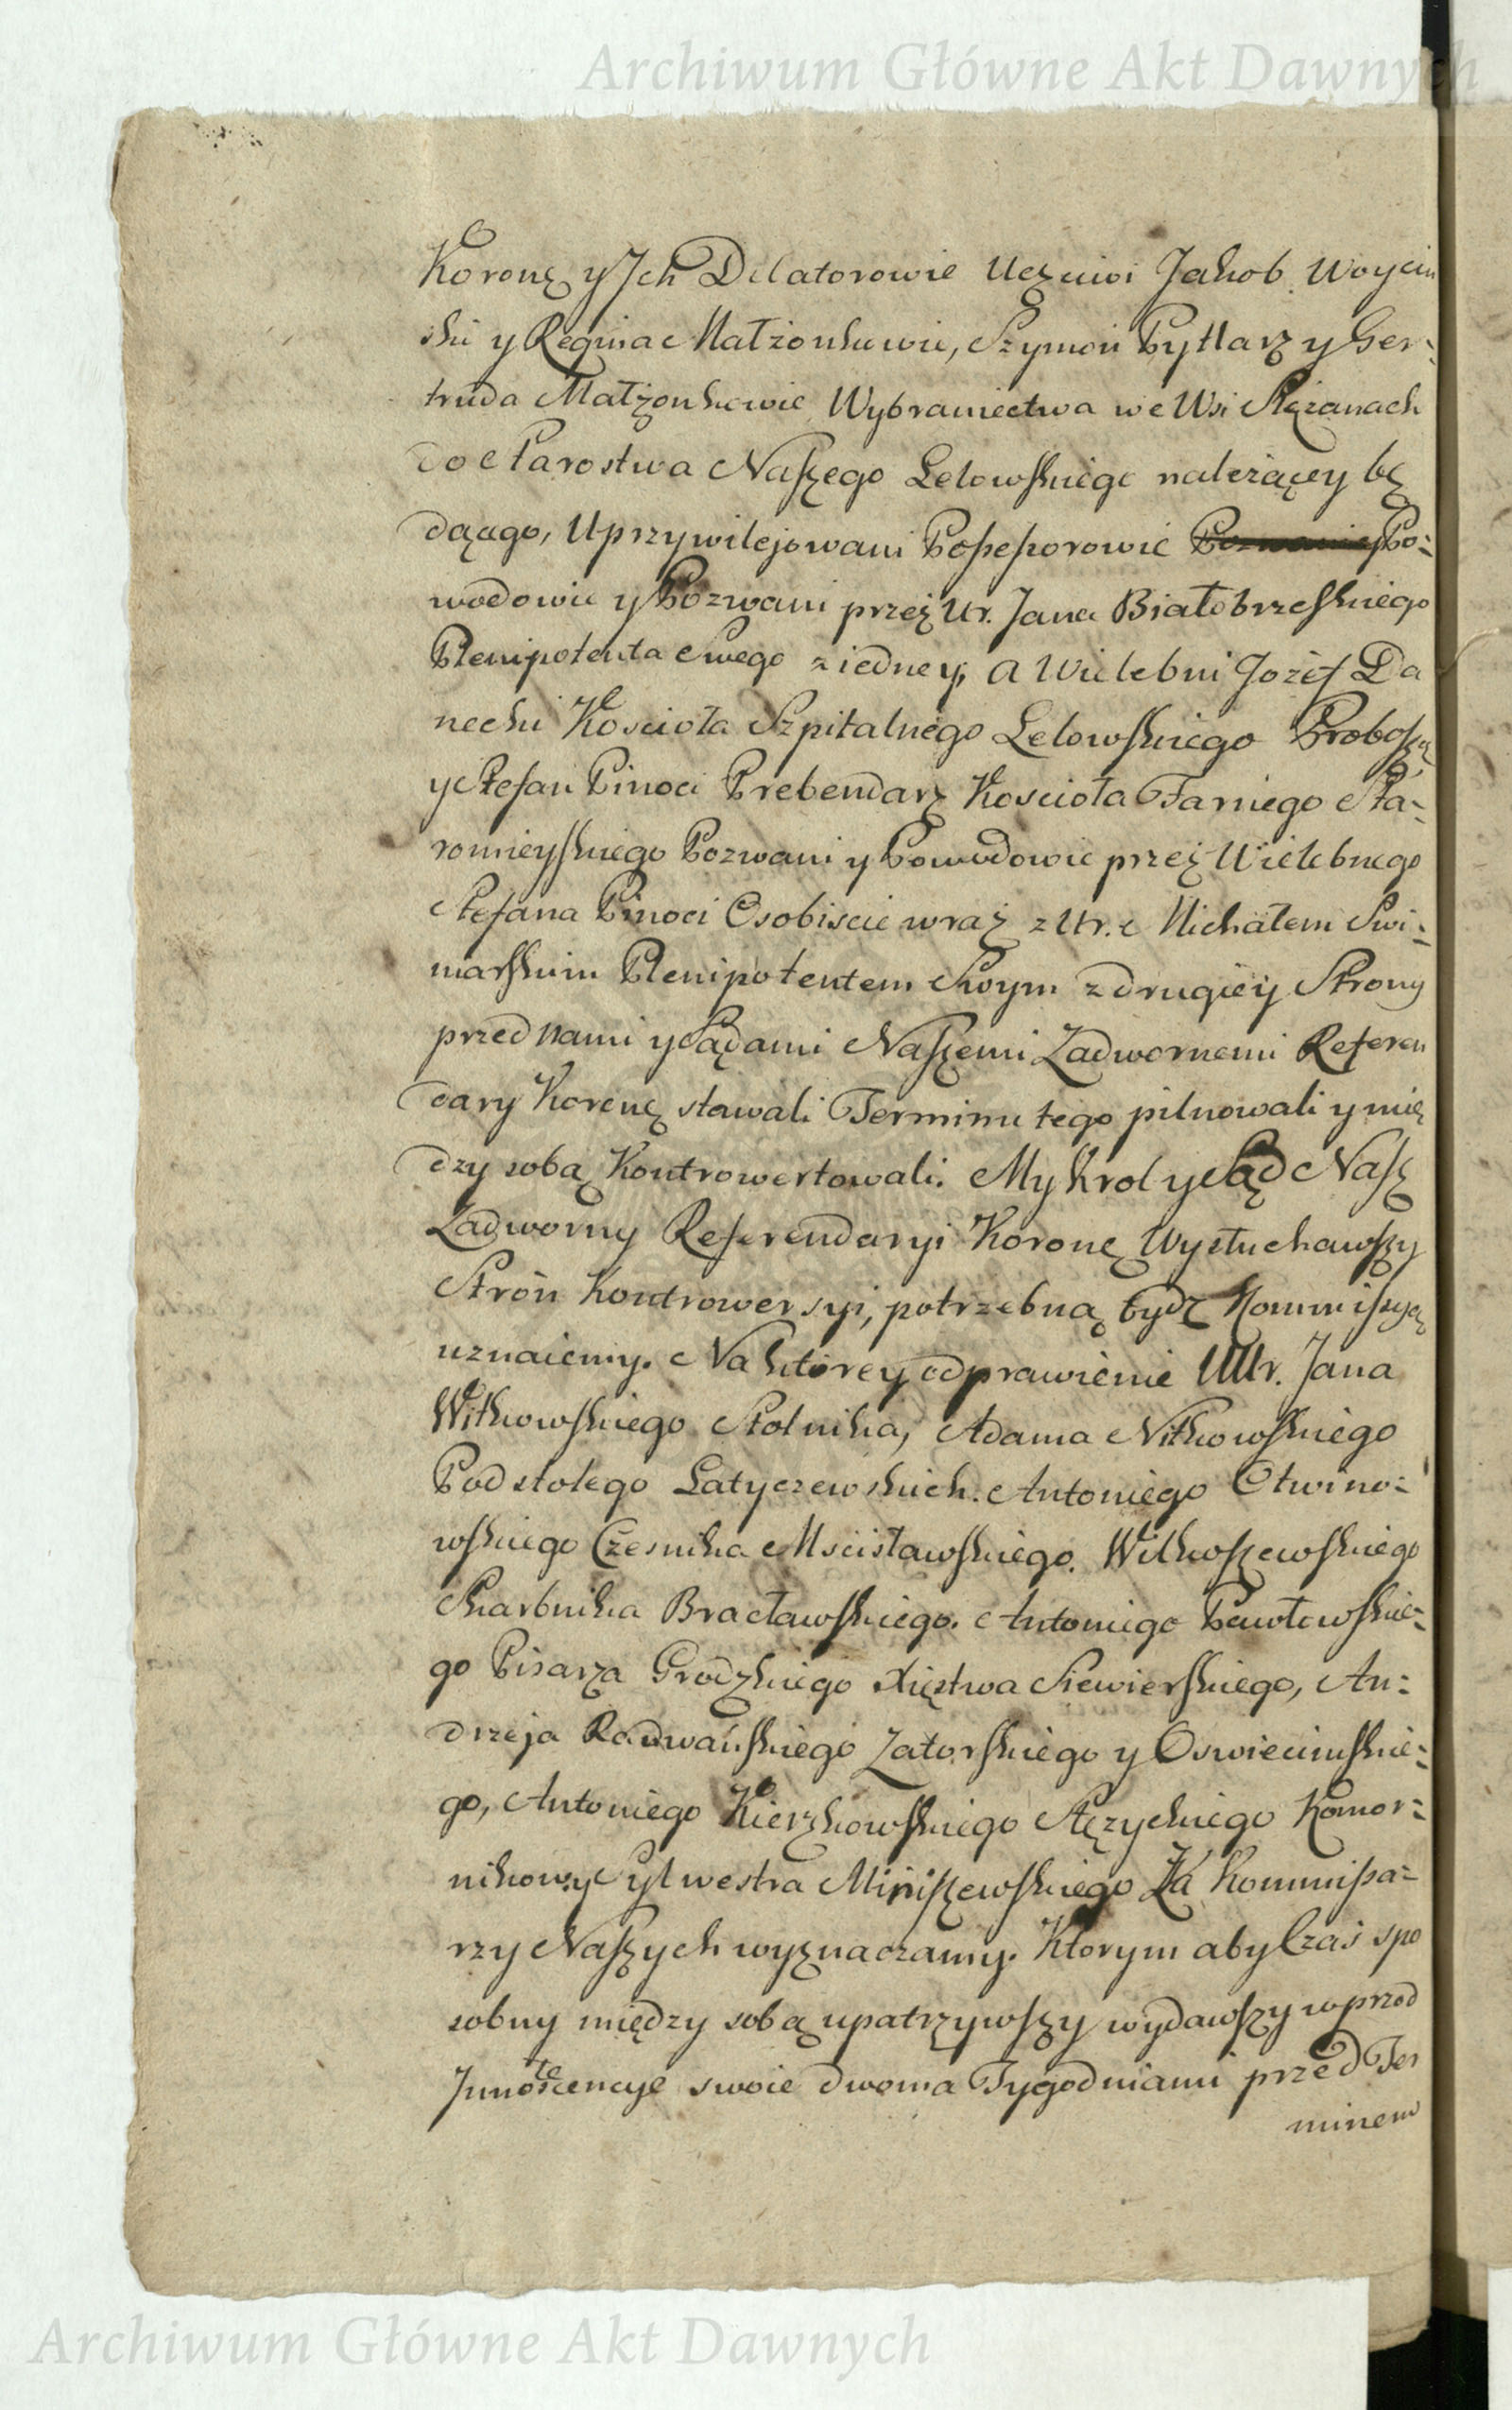 Archiwum Główne Akt Dawnych
Koronę y Jch Delatorowie Uczciwi Jakob Woycin
ski y Regina Małżonkowie, Szymon Pytlarz y Ger-
truda Małżonkowie Wybraniectwa we Wsi Slęzanach
do Starostwa Naszego Lelowskiego należącey bę
dącego, Uprzywilejowani Possessorowie Pozwani y Po-
wodowie y Pozwani przez Ur. Jana Białobrzeskiego
Plenipotenta Swego z iedney, a Wielebni Jozef Da
necki Koscioła Szpitalnego Lelowskiego Proboszcz
y Stefan Pinoci Prebendarz Koscioła Farnego Sta-
romieyskiego Pozwani y Powodowie przez Wielebnego
Stefana Pinoci Osobiscie wraz z Ur. Michałem Swi-
narskim Plenipotentem Swym z drugiey Strony
przed nami y Sądami Naszemi Zadwornemi Referen
dary Koronę stawali Terminu tego pilnowali y mię
dzy sobą Kontrowertowali. My Krol y Sąd Nasz
Zadworny Referendaryi Koronę Wysłuchawszy
Strón Kontrowersyi, potrzebną bydz Kommissyą
uznaiemy. Na ktorey odprawienie UUr. Jana
Witkowskiego Stolnika, Adama Nitkowskiego
Podstolego Latyczewskich. Antoniego Otwino-
wskiego Czesnika Mscisławskiego. Wilkoszewskiego
Skarbnika Bracławskiego. Antoniego Pawłowskie-
go Pisarza Grodzkiego Xięstwa Siewierskiego, An-
drzeja Radwańskiego Zatorskiego y Oswiecimskie-
go, Antoniego Kierzkowskiego Stęzyckiego Komor-
nikow, y Sylwestra Miniszewskiego Za Kommissa-
rzy Naszych wyznaczamy. Ktorym aby Czas spo
sobny między sobą upatrzywszy wydawszy wprzod
Jnnotescencye swoie dwoma Tygodniami przed Ter
minem
Archiwum Główne Akt Dawnych